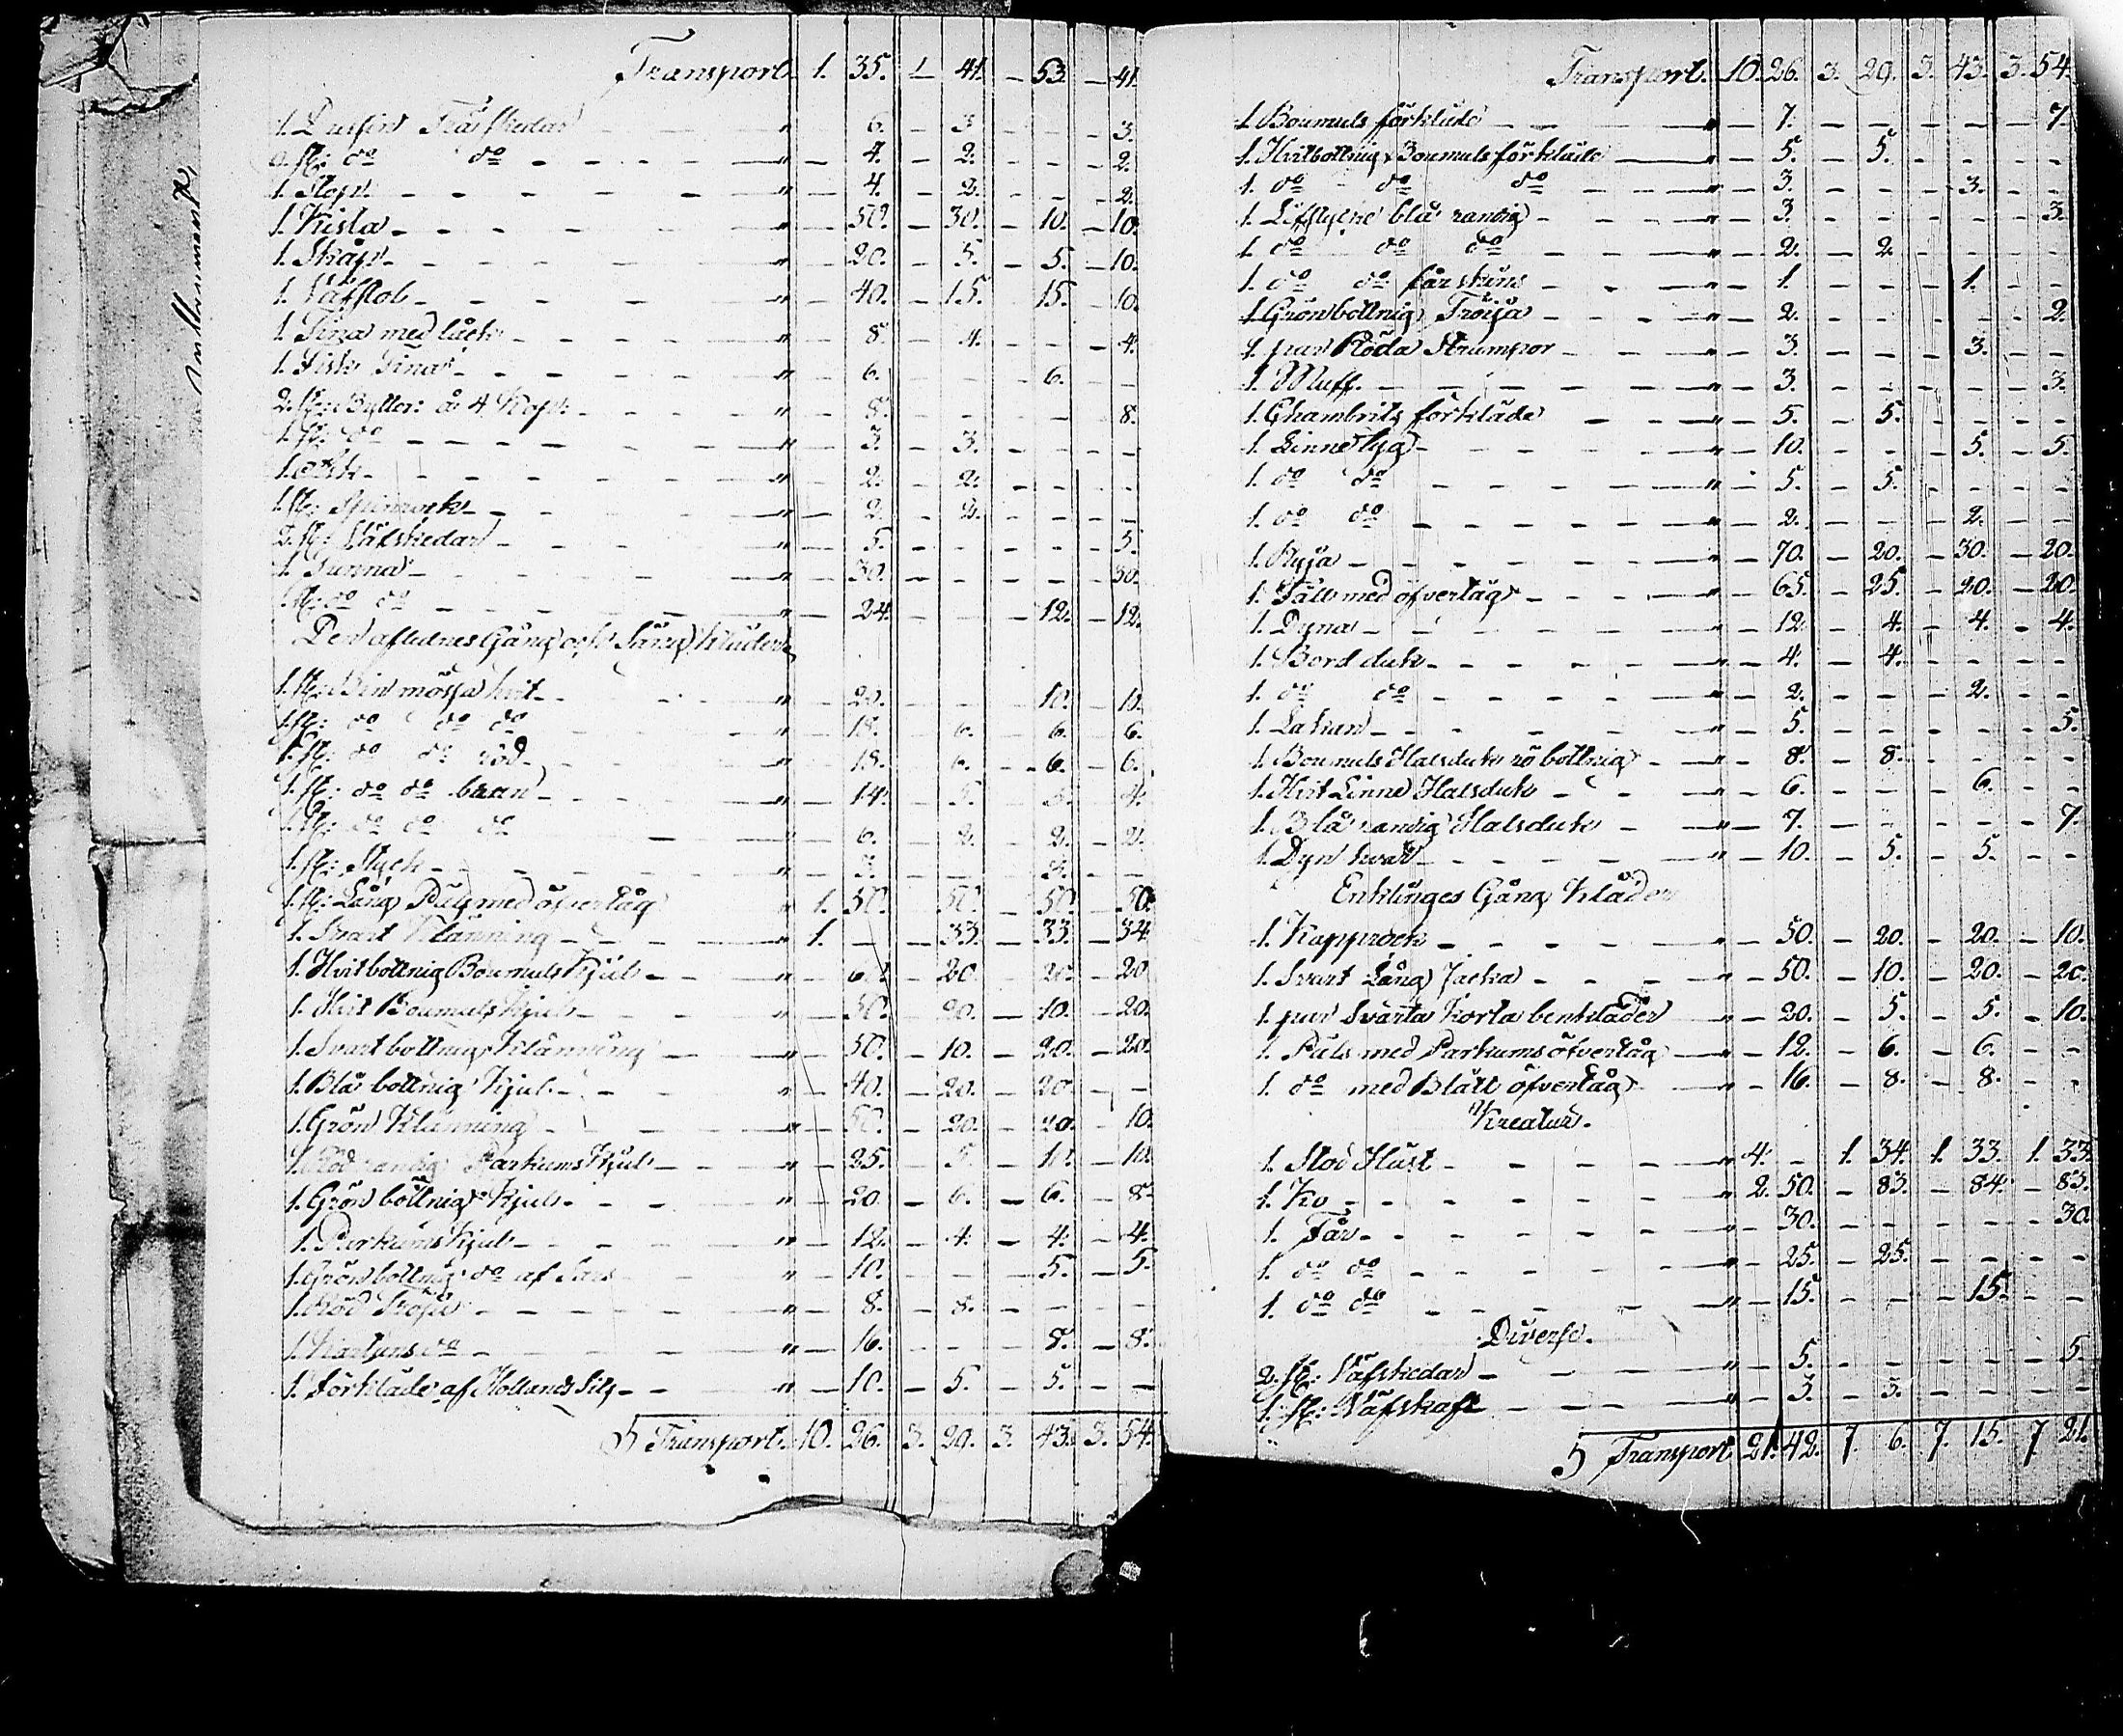 Transport 1. 35. 1 41. – 53 – 41.
1. Dussin Träskedar – " 6. – 3. – 3.
st: do do – " – 4. – 2. – 2.
1. Stop – " – 4. – 2. – 2.
1. Kista – " – 50. – 30. – 10. – 10.
1. Skåp – " – 20. – 5. – 5. – 10.
1. Väfstol – " – 40. – 15. – 15. – 10.
1. Tina med låck – " – 8. – 4. – 4.
1. Fisk tina – " – 6. – – 6. –
2. st: Bytter: à 4 Kop: – " – 8. – – – 8.
1. st: do – " – 3. – 3. – –
1. Ask – " – 2. – 2. – –
1. st: Spinrock – " – 2. – 2. – –
2. st: Väfskedar – " – 5. – – – 5.
1 Tunna – " – 30. – – – 30.
st: do do – " – 24. – – 12. – 12.
Den aflednes Gång och Säng Kläder
1. st: Bin mössa hvit – " – 20. – 10. – 10.
1. st: do do do – " – 18. – 6. – 6. – 6.
1. st: do do röd – " – 18. – 6. – 6. – 6.
1. st: do do brun – " – 14. – 5. – 5. – 4.
1. st: do do do – " – 6. – 2. – 2. – 2.
1. st: Styck – " – 3. – – 3. –
1. st: Lång Päls med öfvertåg " 1. 50. 50. – 50. – 50.
1. Svart Klänning – " 1. – – 33. – 33. – 34
1. Hvitbottnig Bomuls Kjul – " – 60. – 20. – 20. – 20
1. Hvit Bomuls Kjul – " – 50. – 20. – 10. – 20.
1. Svart bottnig Klänning – " – 50. – 10. – 20. – 20.
1. Blå bottnig Kjul – " – 40. – 20. – 20. – –
1. Grön Klänning – " – 50. – 20. – 20. – 10.
1. Röd randig Parkums Kjul – " – 25. – 5. – 10. – 10.
1. Grön bottnig Kjul – " – 20. – 6. – 6. – 8.
1. Parkums Kjul – " – 12. – 4. – 4. – 4.
1. Grön bottnig do af Sars " – 10. – – 5. – 5.
1. Röd Tröja – " – 8. – 8. – – –
1. Kartuns do – " – 16. – – 8. – 8.
1. Förkläde af Hollands Sits – " – 10. – 5. – 5. – –
S Transport 10. 26. 3. 29. 3. 43. 3. 54.
Transport. 10. 26. 3. 29. 3. 43. 3. 54.
1 Boumuls förkläde – " – 7. – – – 7.
1. Hvitbottnig Boumuls förkläde – " – 5. – 5. – –
1. do do do – " – 3. – – 3. –
1. Lifstycke blå randig – " – 3. – – – 3.
1. do do do – " – 2. – 2. – –
1. do do fårskins – " – 1. – – 1. –
1. Grönbottnig Tröija – " – 2. – – – 2.
1. par Röda Strumpor – " – 3. – – 3. –
1. Muff. – " – 3. – – – 3.
1. Chambrits förkläde – " – 5. – 5. – –
1. Linne tyg – " – 10. – – 5. – 5.
1. do do – " – 5. – 5. – –
1. do do – " – 2. – – 2. –
1. Ryja – " – 70. – 20. – 30. – 20.
1. Fäll med öfvertåg – " – 65. – 25. – 20. – 20.
1. Dyna – " – 12. – 4. – 4. – 4.
1. Bord duk – " – 4. – 4. – –
1. do do – " – 2. – – 2. –
1. Lakan – " – 5. – – – 5.
1. Boumuls Halsduk röbottnig – " – 8. – 8. – –
1. Hvit Linne Halsduk – " – 6. – – 6. –
1. Blå randig Halsduk – " – 7. – – – 7.
1. Dyn hvar – " – 10. – 5. – 5. –
Enklinges Gång Kläder
1. Kapprock – " – 50. – 20. – 20. – 10.
1. Svart Lång Jacka – " – 50. – 10. – 20. – 20.
1. par Svarta Korta benkläder – " – 20. – 5. – 5. – 10.
1. Päls med Parkums öfvertåg – " – 12. – 6. – 6. – –
1. do med Blått öfvertåg – " – 16. – 8. – 8. – –
Kreatur.
1. Stod Häst – " 4. – 1. 34. 1. 33. 1. 33.
1. Ko – " 2. 50. – 83. – 84. – 83.
1. Får – " – 30. – – – 30
1. do do – " – 25. – 25. – –
1. do do – " – 15. – – 15. –
Diverse.
2. st: Väfskedar – " – 5. – – – 5
1. st: Väfskaft – " – 3. – 3. – –
S Transport 21. 42. 7. 6. 7. 15. 7 21.